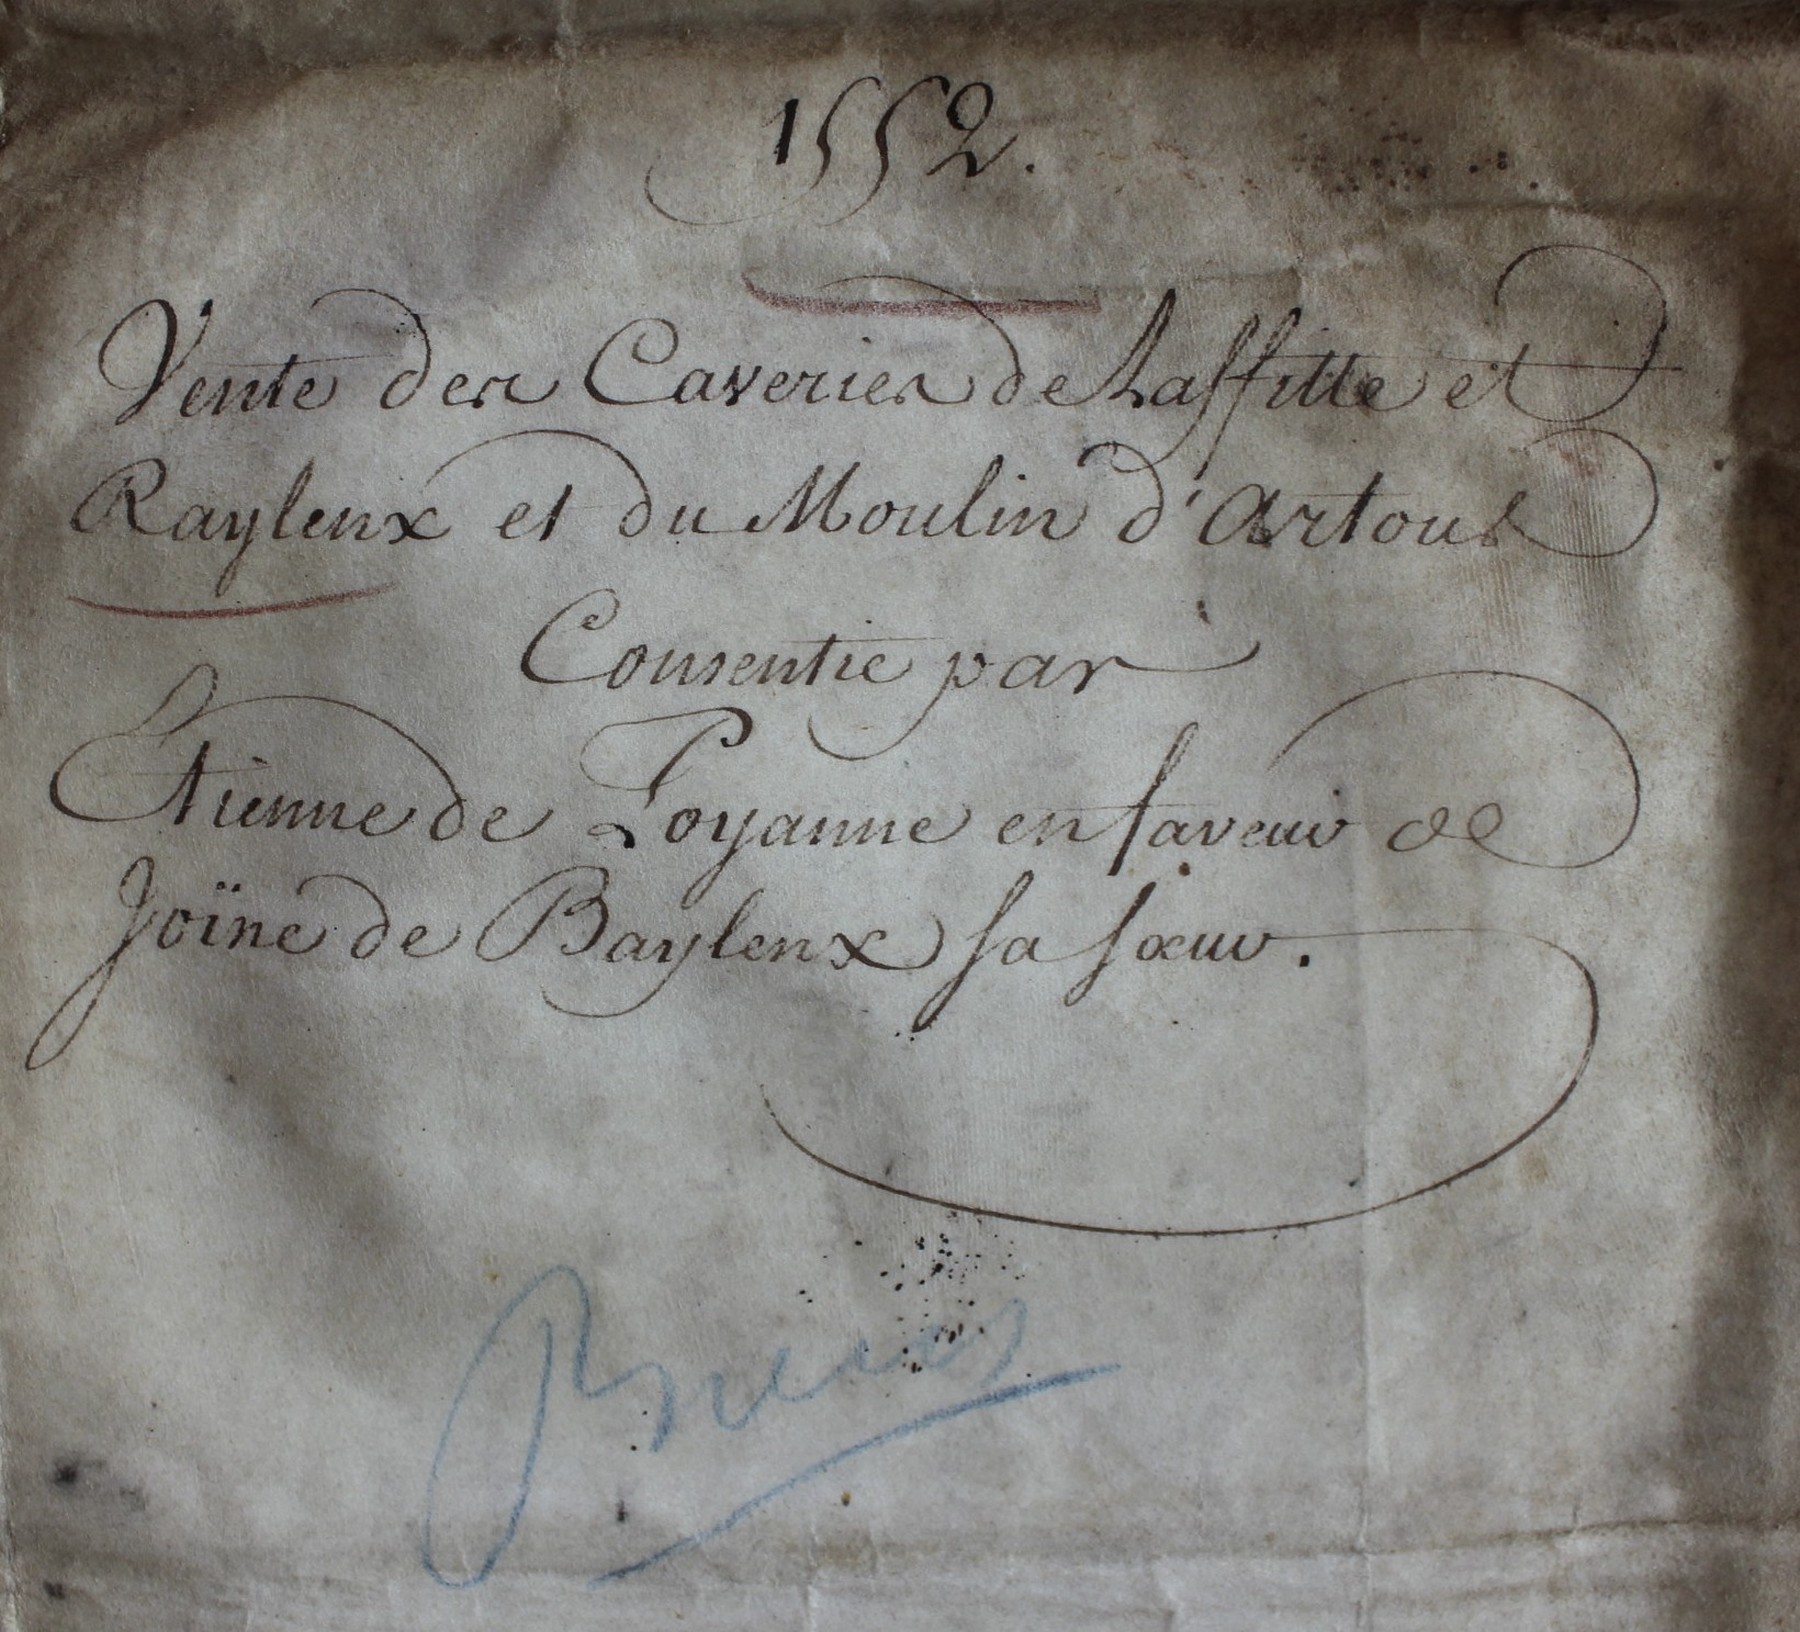 1552.
Vente des Caveries de Laffitte et
Baylenx et du Moulin d'Artous
Consentie par
Etienne de Poyanne en faveur de
Joïne de Baylenx sa sœur.